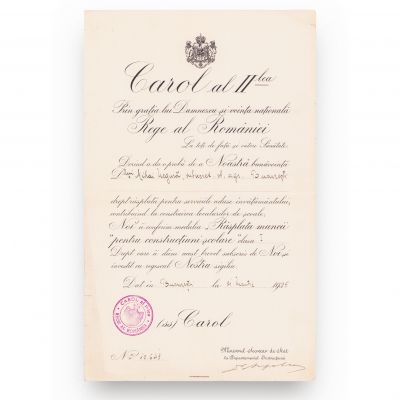 Carol al II lea
Prin grația lui Dumnezeu și voința națională
Rege al României
La toți de față și viitori Sănătate.
Dorind a da o probă de a Noastră bunăvoință
D lui Mihai
drept răsplată pentru serviciile aduse învățământului,
contribuind la construirea localurilor de școale,
Noi îi conferim medalia "Răsplata muncii
pentru construcțiuni școlare" clasa I
Drept care îi dăm acest brevet subscris de Noi și
învestit cu regescul Nostru sigiliu.
Dat în București la 193
(ss) Carol
Ministrul Secretar de Stat
la Departamentul
No